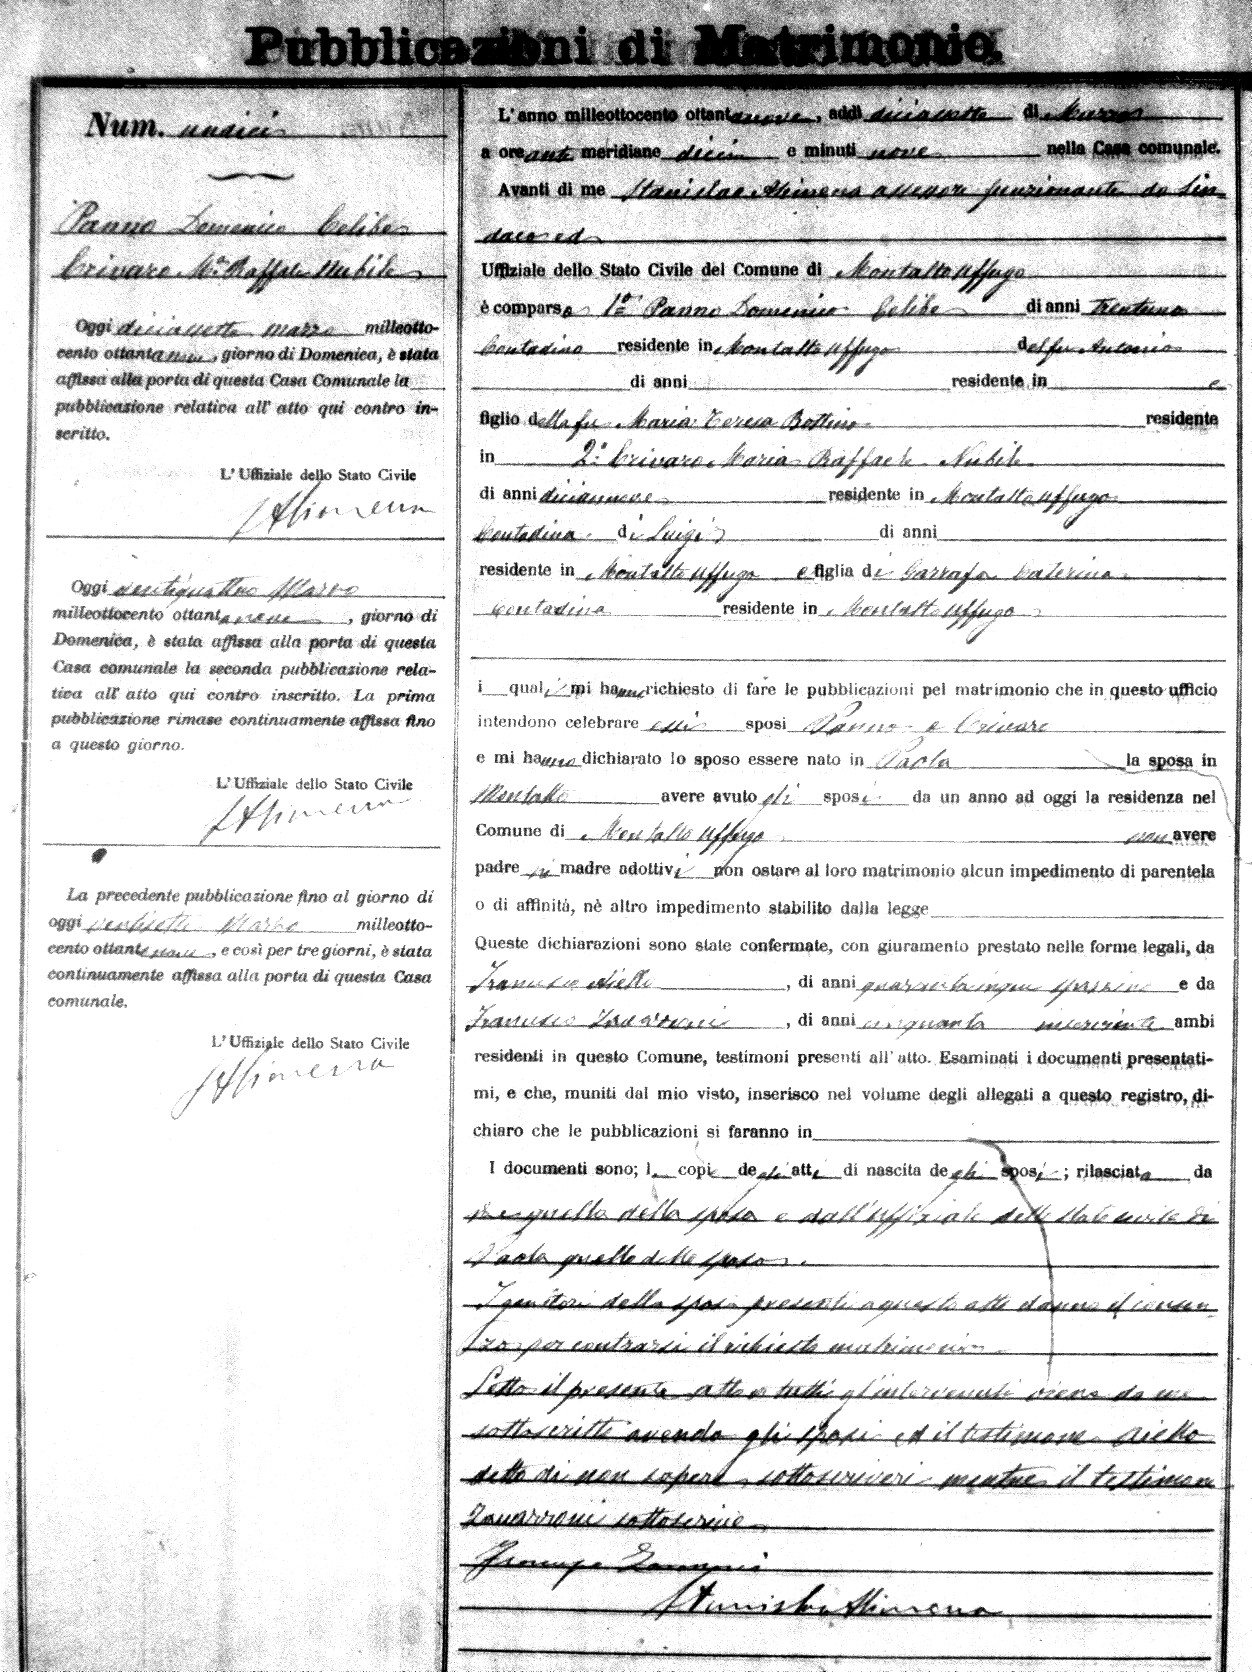 Pubblicazioni di Matrimonio.
Num. undici
Panno Domenico Celibe
Crivaro Ma Raffaela Nubile
Oggi diciassette marzo milleotto-
cento ottantanove, giorno di Domenica, è stata
affissa alla porta di questa Casa Comunale la
pubblicazione relativa all' atto qui contro in-
scritto.
L' Uffiziale dello Stato Civile
SAlimena
Oggi ventiquattro Marzo
milleottocento ottantanove, giorno di
Domenica, è stata affissa alla porta di questa
Casa comunale la seconda pubblicazione rela-
tiva all' atto qui contro inscritto. La prima
pubblicazione rimase continuamente affissa fino
a questo giorno.
L' Uffiziale dello Stato Civile
SAlimena
La precedente pubblicazione fino al giorno di
oggi ventisette Marzo milleotto-
cento ottantanove, e così per tre giorni, è stata
continuamente affissa alla porta di questa Casa
comunale.
L' Uffiziale dello Stato Civile
SAlimena
L' anno milleottocento ottantanove, addì diciassette di Marzo
a ore anti meridiane dieci e minuti nove nella Casa comunale.
Avanti di me Stanislao Alimena assessore funzionante da Sin-
daco ed
Uffiziale dello Stato Civile del Comune di Montalto Uffugo
è comparso 1o Panno Domenico Celibe di anni trentuno
Contadino residente in Montalto Uffugo del fu Antonio
di anni residente in e
figlio della fu Maria Teresa Bottino residente
in 2o Crivaro Maria Raffaela Nubile
di anni diciannove residente in Montalto Uffugo
Contadina di Luigi di anni
residente in Montalto Uffugo e figlia di Garrafa Caterina
contadina residente in Montalto Uffugo
i quali mi hanno richiesto di fare le pubblicazioni pel matrimonio che in questo ufficio
intendono celebrare essi sposi Panno e Crivaro
e mi hanno dichiarato lo sposo essere nato in Paola la sposa in
Montalto avere avuto gli sposi da un anno ad oggi la residenza nel
Comune di Montalto Uffugo non avere
padre nè madre adottivi non ostare al loro matrimonio alcun impedimento di parentela
o di affinità, nè altro impedimento stabilito dalla legge
Queste dichiarazioni sono state confermate, con giuramento prestato nelle forme legali, da
Francesco Aiello, di anni quarantacinque spazzino e da
Francesco Zavarroni, di anni cinquanta inserviente ambi
residenti in questo Comune, testimoni presenti all' atto. Esaminati i documenti presentati-
mi, e che, muniti dal mio visto, inserisco nel volume degli allegati a questo registro, di-
chiaro che le pubblicazioni si faranno in
I documenti sono; le copie degli atti di nascita degli sposi; rilasciata da
me quella della sposa e dall'Uffiziale dello Stato civile di
Paola quello dello sposo.
I genitori della sposa presenti a questo atto danno il consen-
so per contrarsi il richiesto matrimonio.
Letto il presente atto a tutti gl'intervenuti viene da me
sottoscritto avendo gli sposi ed il testimone Aiello
detto di non sapere sottoscriversi mentre il testimone
Zavarroni sottoscrive
Francesco Zavarroni
Stanislao Alimena